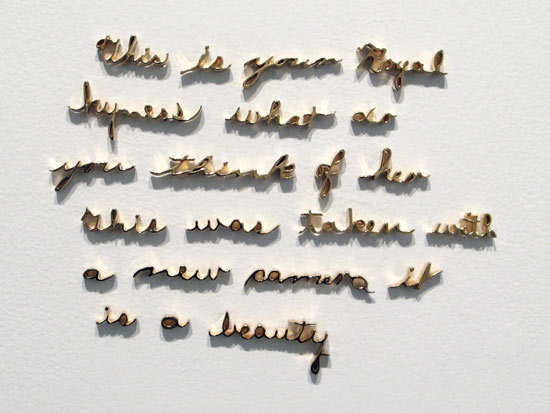 this is your Royal
hyness what do
you think of her
this was taken with
a new camera it
is a beauty